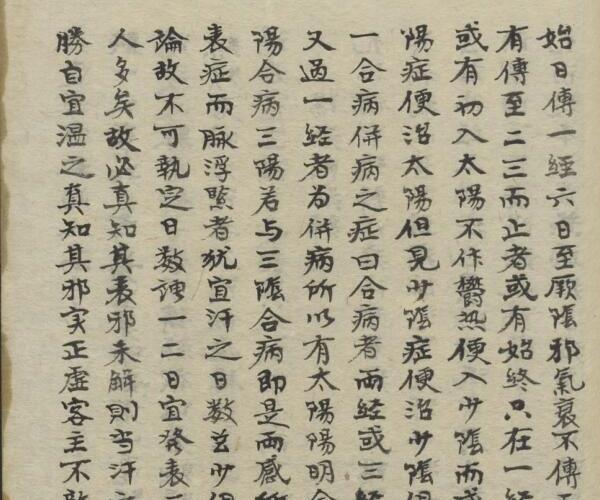 始日傳一經六日至厥陰邪氣衰不傳
有傳至二三而止者或有始終只在一經
或有初入太陽不作鬱热便入少陰而
陽症便治太陽但見少陰症便治少陰
一合病併病之症曰合病者両經或三經
又過一經者为併病所以有太陽陽明合
陽合病三陽若与三陰合病即是両感所
表症而脉浮緊者犹宜汗之日数雖少但
論故不可執定日数謂一二日宜發表三
人多矣故必真知其表邪未解則当汗之
勝自宜温之真知其邪实正虚客主不敵